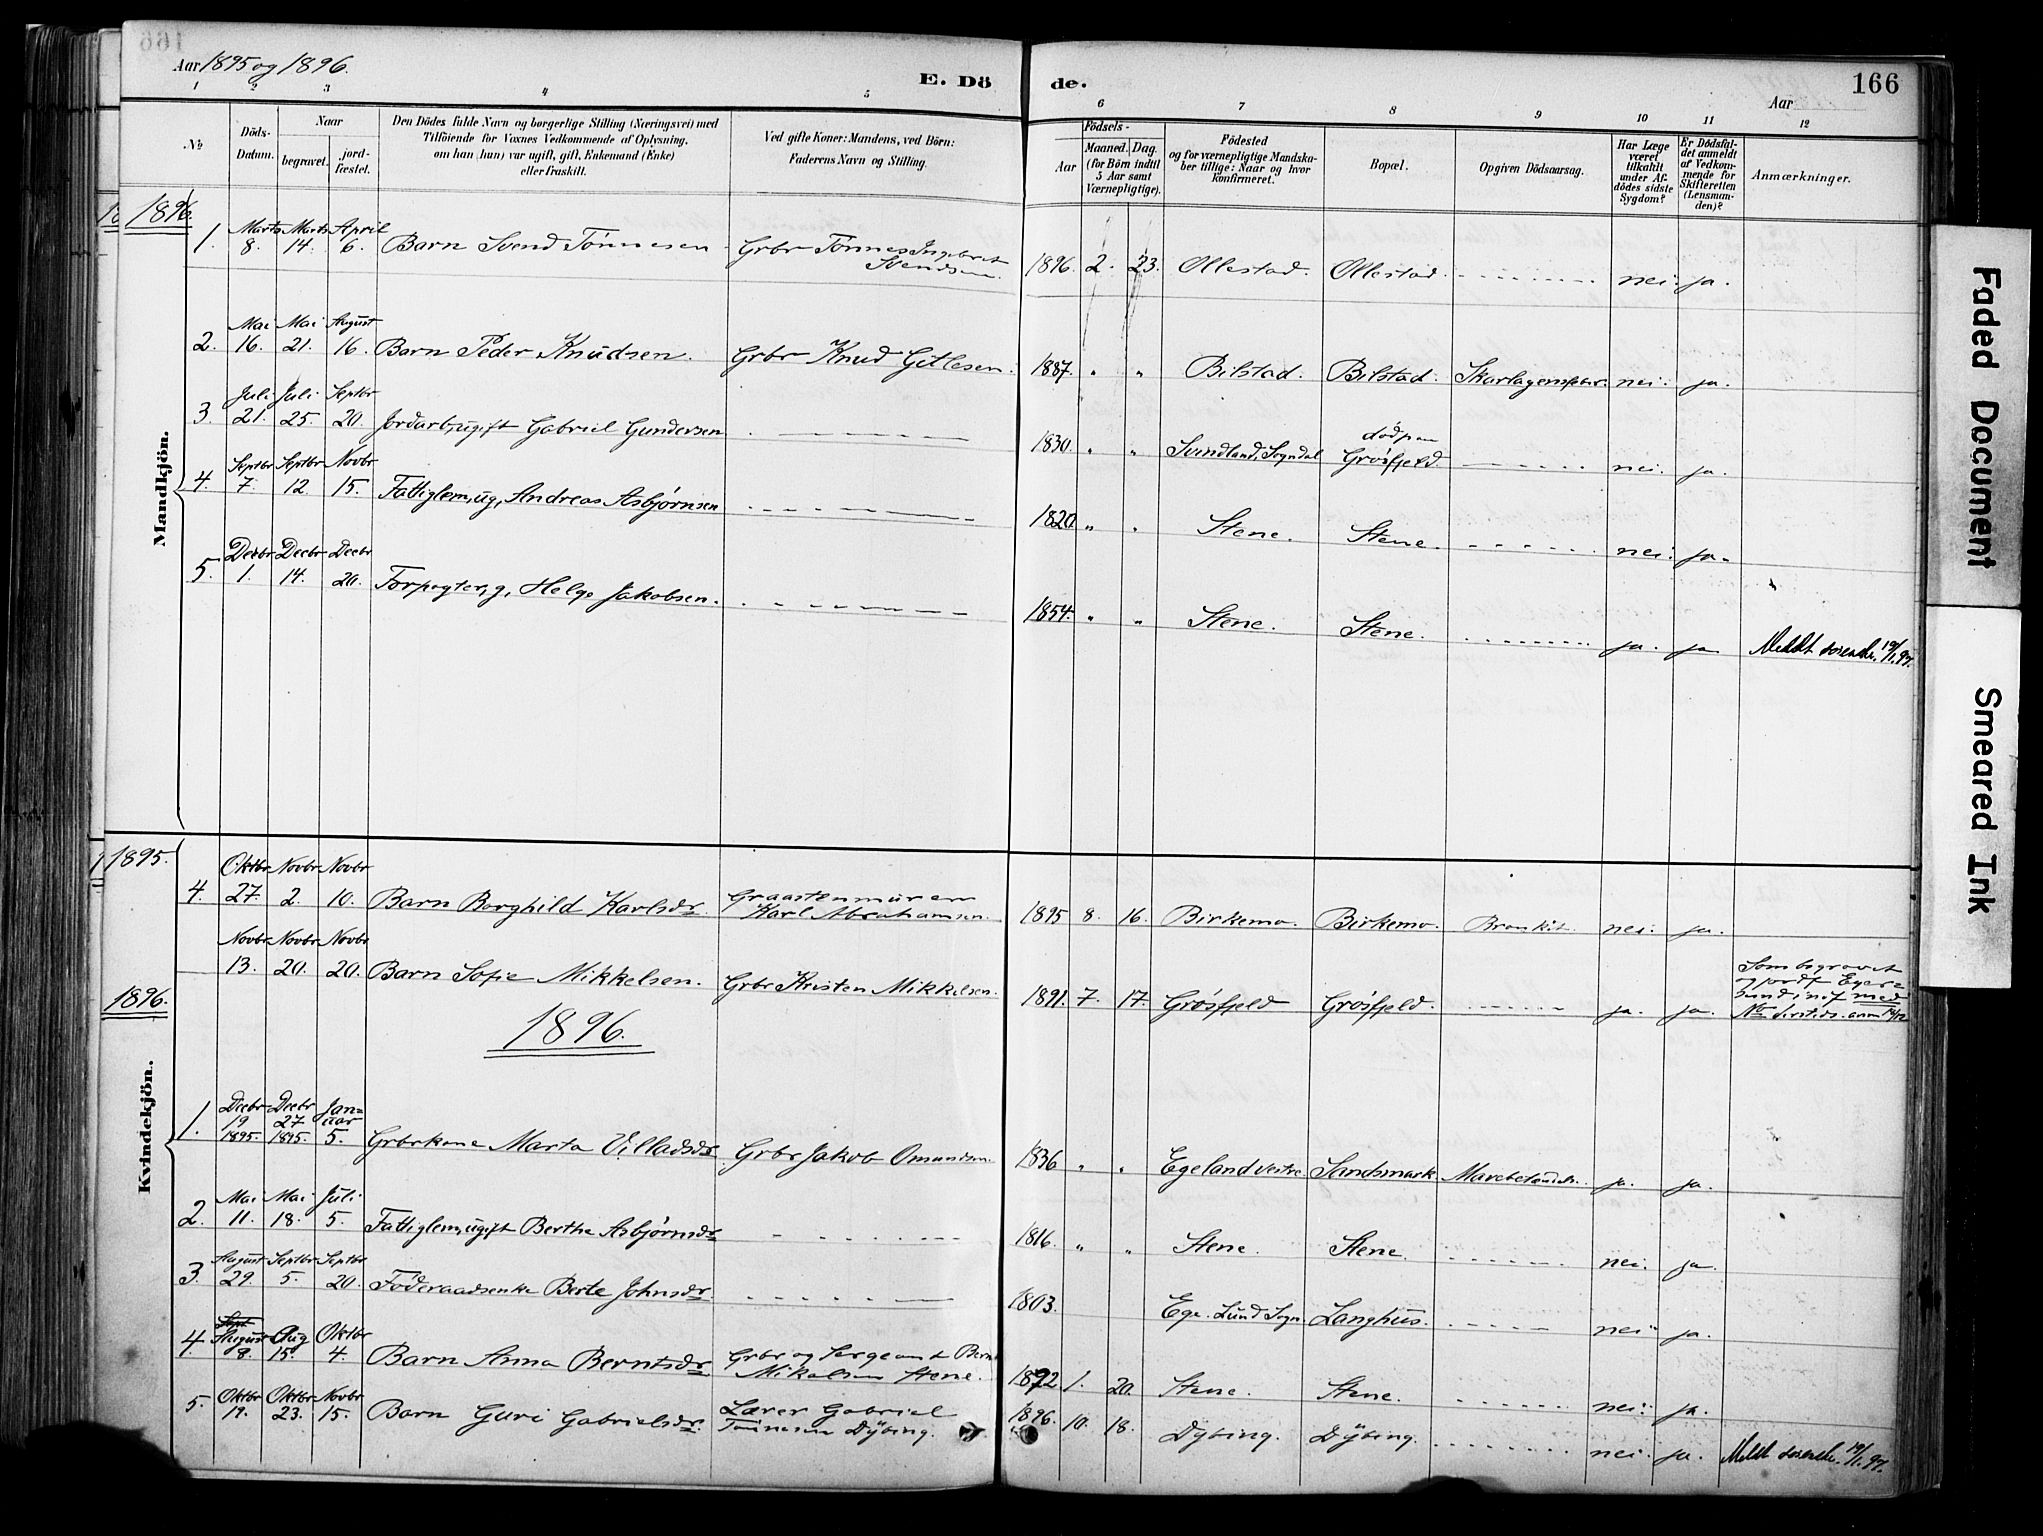 Aar 1895 og 1896.
E. Dö
de.
166
Aar
1 2 3 4 5 6 7 8 9 10 11 12
№
Döds-Datum.
Naar
begravet.
jord-fæstet.
Den Dödes fulde Navn og borgerlige Stilling (Næringsvei) med
Tilföiende for Voxnes Vedkommende af Oplysning,
om han (hun) var ugift, gift, Enkemand (Enke)
eller fraskilt.
Ved gifte Koner: Mandens, ved Börn:
Faderens Navn og Stilling.
Födsels-
Aar
Maaned. Dag.
(for Börn indtil
5 Aar samt
Værnepligtige).
Födested
og for værnepligtige Mandska-
ber tillige: Naar og hvor
konfirmeret.
Bopæl.
Opgiven Dödsaarsag.
Har Læge
været
tilkaldt
under Af-
dödes sidste
Sygdom?
Er Dödsfal-
det anmeldt
af Vedkom-
mende for
Skifteretten
(Lensman-
den)?
Anmærkninger.
1896.
Mandkjön.
1. Marts 8. Marts 14. April 6. Barn Svend Tönnesen Grbr Tönnes Ingebret Svendsen 1896. 2. 23. Ollestad. Ollestad. nei. ja.
2. Mai 16. Mai 21. August 16. Barn Peder Knudsen. Grbr Knud Gitlesen. 1887. " " Bilstad. Bilstad. Skarlagensfeber. nei. ja.
3. Juli 21. Juli 25. Septbr 20. Jordarb, ugift Gabriel Gundersen 1830. " " Svindland, Sogndal död paa Grösfjeld nei. ja.
4. Septbr 7. Septbr 12. Novbr 15. Fattiglem, ug, Andreas Asbjørnsen 1820 " " Stene. Stene. nei. ja.
5. Decbr 1. Decbr 14. Decbr 20. Forpagter, g, Helge Jakobsen. 1854. " " Stene. Stene. ja. ja. Meldt sorenskr. 19/1.97.
1895.
4. Oktbr 27. Novbr 2. Novbr 10. Barn Borghild Karlsdr. Graastenmurer Karl Abrahamsen. 1895 8. 16. Birkemo. Birkemo. Bronkit. nei. ja.
Novbr 13. Novbr 20. Novbr 20. Barn Sofie Mikkelsen. Grbr Kristen Mikkelsen. 1891. 7. 17. Grösfjeld Grösfjeld. ja. ja. Som begravet og jordf Eger=sund indf med No dersteds. anm
1896.
1896.
Kvindekjön.
1. Decbr 19 1895. Decbr 27 1895. Jan=uar 5. Grbrkone Marta Villadsdr. Grbr Jakob Omundsen. 1836 " " Egeland vestre Sandsmark ja. ja.
2. Mai 11. Mai 18. Juli 5. Fattiglem, ugift Berthe Asbjørnsdr 1816. " " Stene. Stene. nei. ja.
3. August 29. Septbr 5. Septbr 20. Föderaadsenke Berte Johnsdr. 1803. Ege. Lund Sogn. Langhus. nei. ja.
4. Sept August 8. Aug 15. Oktbr 4. Barn Anna Berntsdr Grbr og Sergeant Bernt Mikalsen Stene. 1892 1. 20. Stene. Stene. nei. ja.
5. Oktbr 19. Oktbr 23. Novbr 15. Barn Guri Gabrielsdr. Lærer Gabriel Tönnesen Dybing. 1896. 10. 18. Dybing. Dybing. nei. ja. Meldt sorenskr. 19/1.97.
Faded Document
Smeared Ink